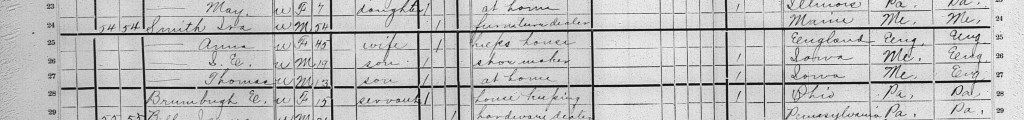 23 — May. W F 7 daughter / at home / Illinois Pa. Pa.
24 54 54 Smith Ira W M 54 / furniture dealer Maine Me. Me. 24
25 — Anna W F 45 wife / keeps house England Eng. Eng 25
26 — S. E. W M 19 son / shoe maker / Iowa Me. Eng 26
27 — Thomas W M 13 son / at home / Iowa Me. Eng 27
28 Brumbugh E. W F 15 servant / house keeping / Ohio Pa. Pa. 28
29 55 55 / hardware dealer Pennsylvania Pa. Pa. 29